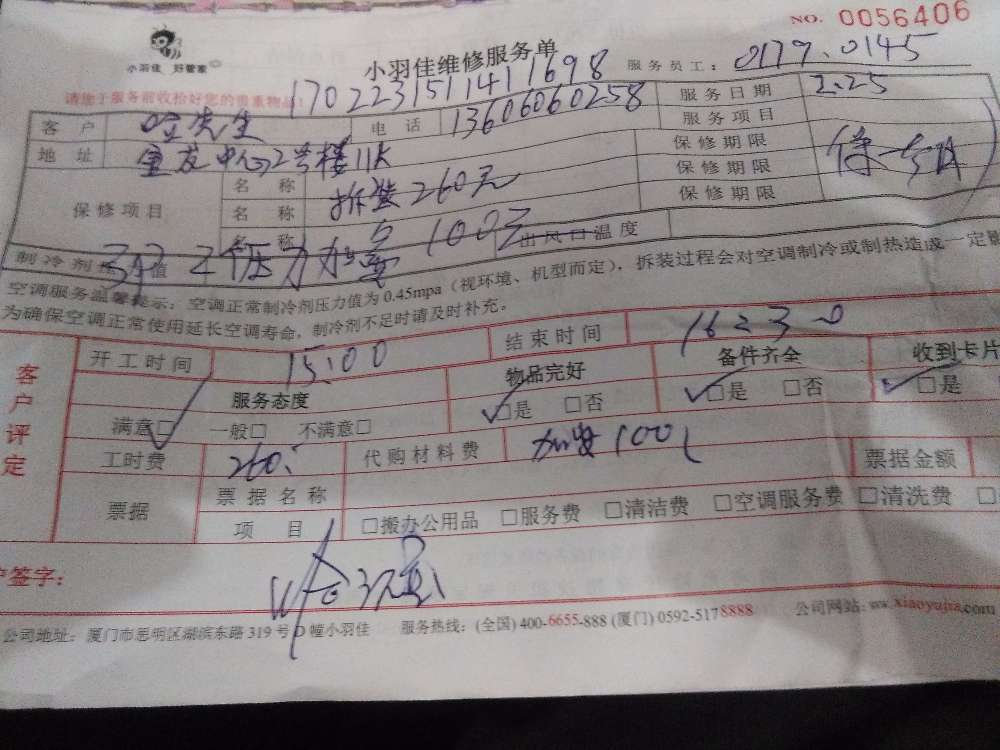 NO. 0056406
小羽佳 好管家
小羽佳维修服务单
服务员工: 0179、0145
请您于服务前收拾好您的贵重物品!
170223151141698
客户 先生 电话 13606060258 服务日期 2.25
地址 宝龙中心2号楼11K 服务项目
保修项目 名称 拆装260元 保修期限
名称 保修期限
名称 100元 保修期限
制冷剂 值 压力加 出风口温度
空调服务温馨提示:空调正常制冷剂压力值为0.45mpa(视环境、机型而定),拆装过程会对空调制冷或制热造成一定影
为确保空调正常使用延长空调寿命,制冷剂不足时请及时补充。
客户评定
开工时间 15:00 结束时间
服务态度 物品完好 备件齐全 收到卡片
满意□ 一般□ 不满意□ □是 □否 □是 □否 □是
工时费 260. 代购材料费 100 票据金额
票据 票据名称
项目 □搬办公用品 □服务费 □清洁费 □空调服务费 □清洗费 □
签字:
公司地址: 厦门市思明区湖滨东路319号D幢小羽佳 服务热线:(全国)400-6655-888 (厦门)0592-5178888 公司网站:www.xiaoyujia.com